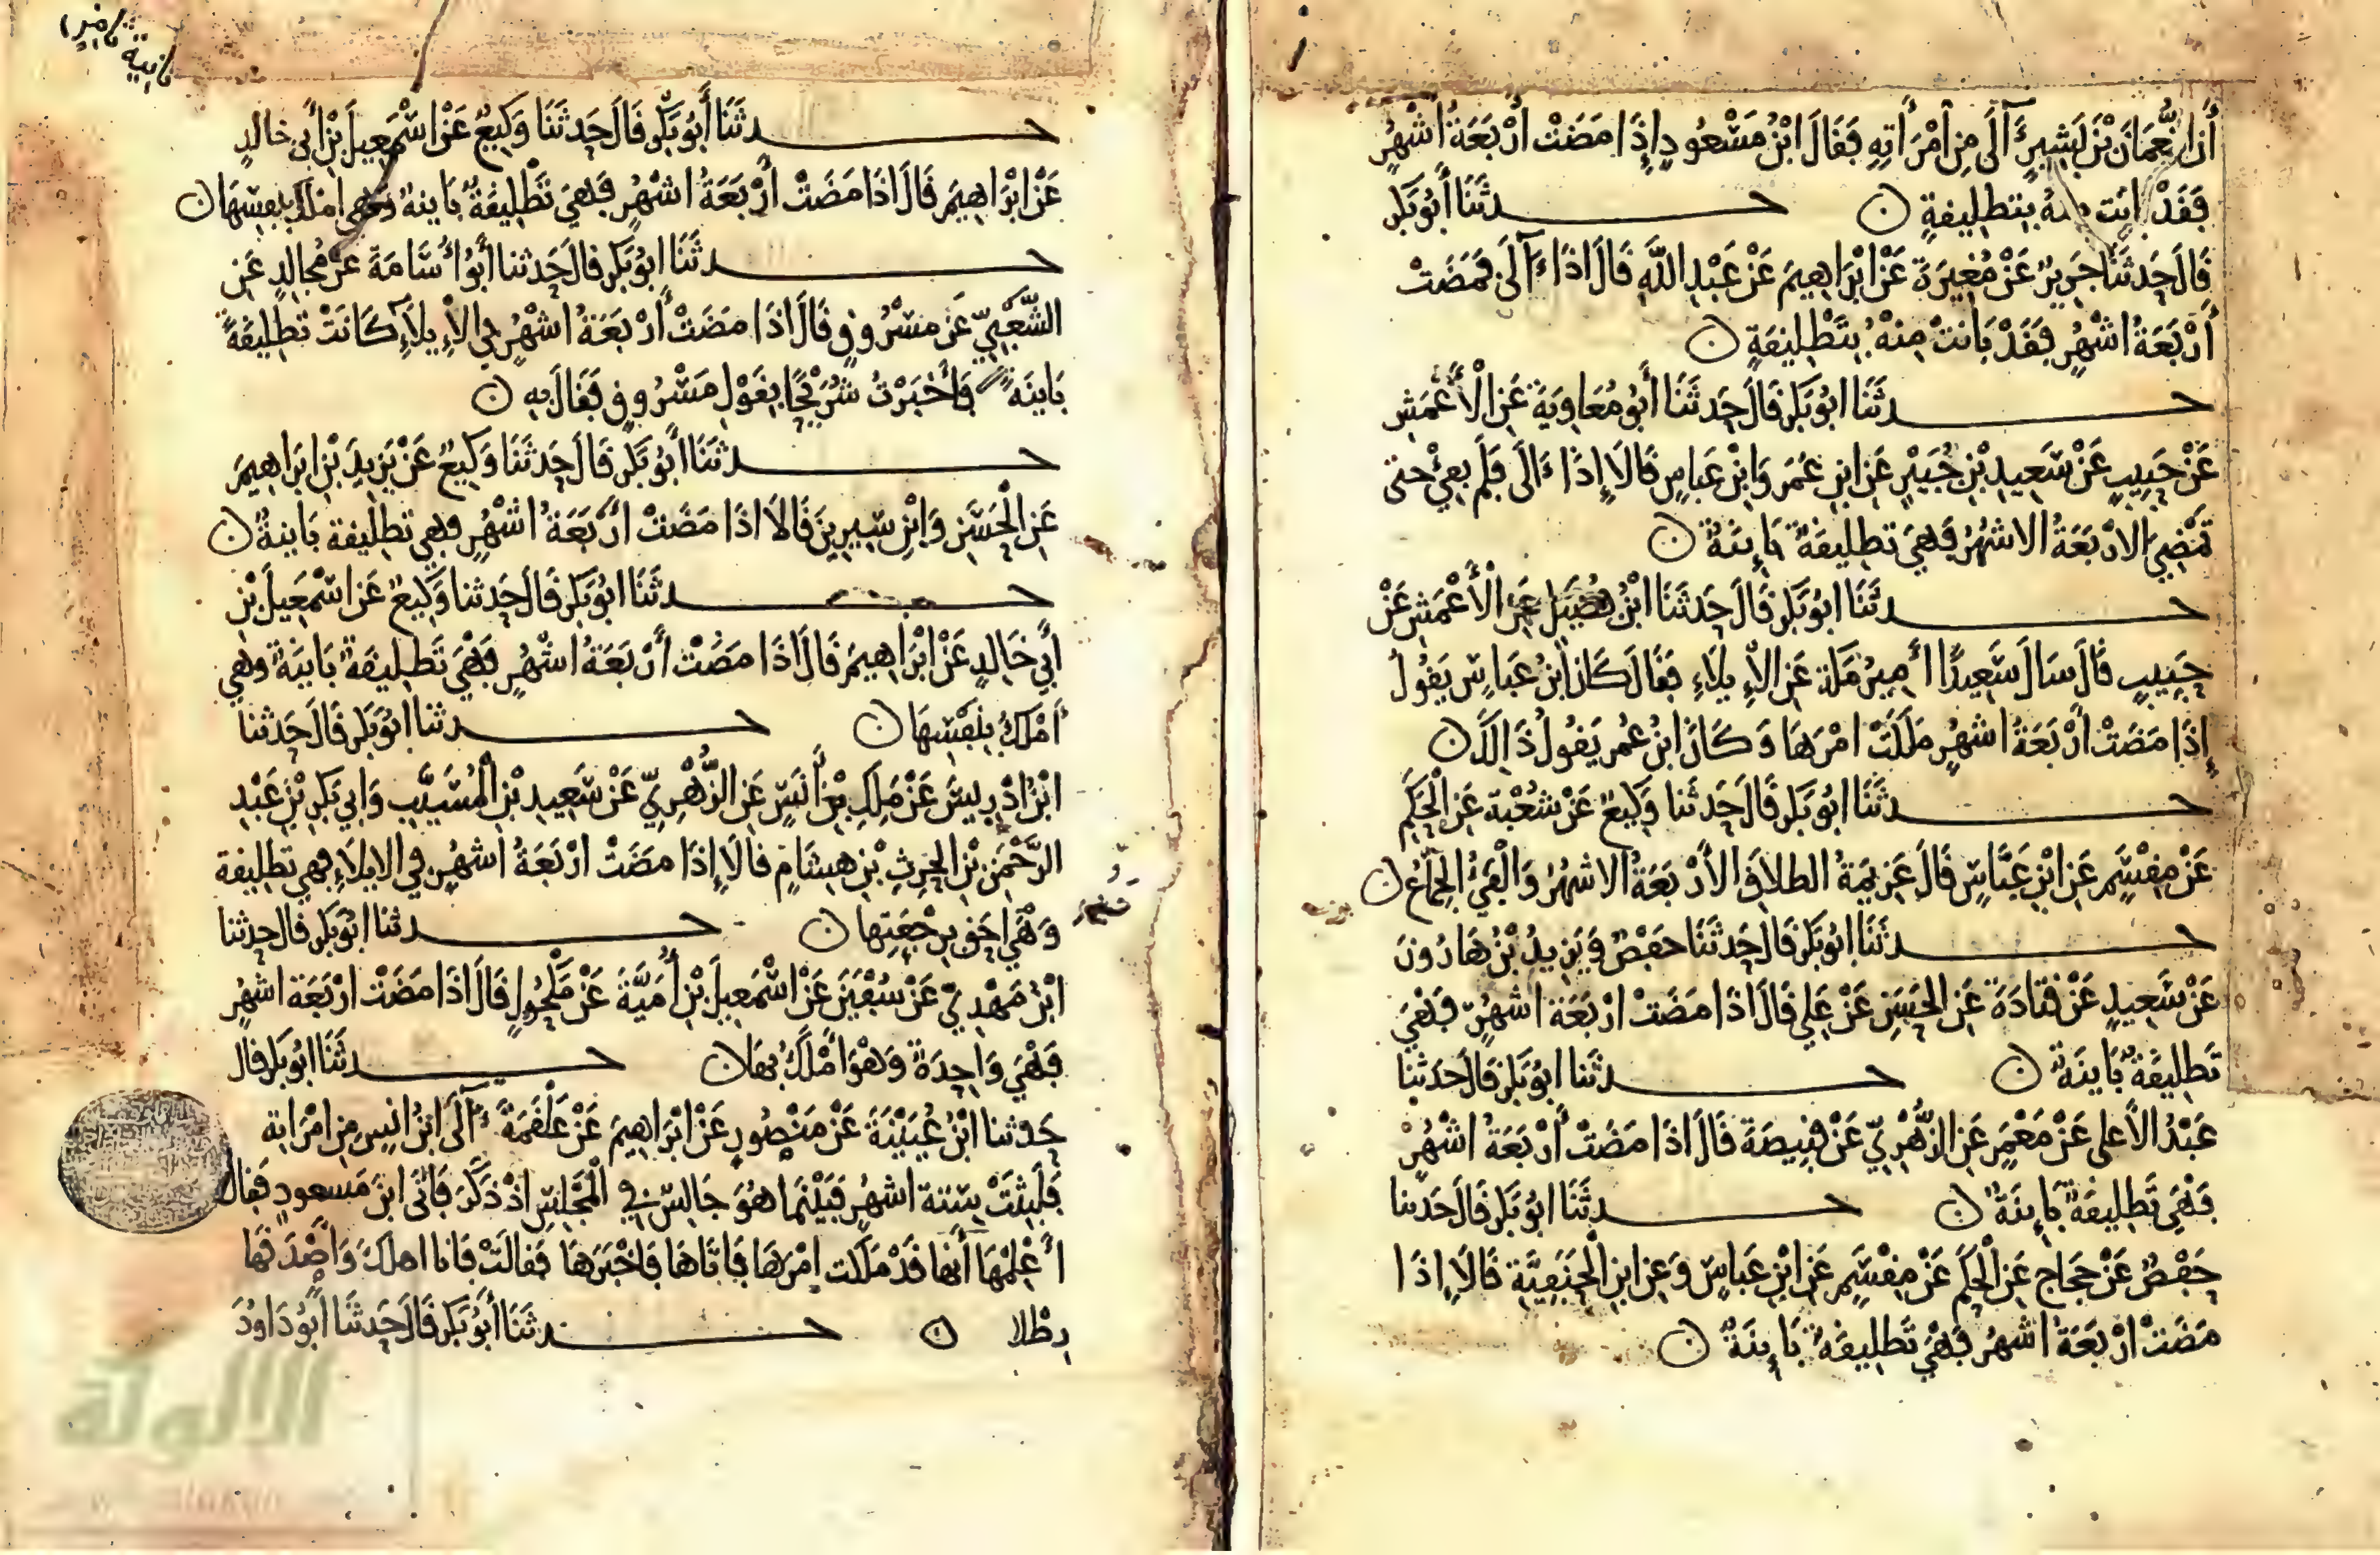 أن النعمان بن بشير آلى من امرأته فقال ابن مسعود إذا مضت أربعة أشهر
فقد بانت منه بتطليقة ن حدثنا أبو بكر
قال حدثنا جرير عن مغيرة عن ابراهيم عن عبد الله قال اذا آلى فمضت
أربعة اشهر فقد بانت منه بتطليقة ن
حدثنا ابو بكر قال حدثنا أبو معاوية عن الأعمش
عن حبيب عن سعيد بن جبير عن ابن عمر وابن عباس قالا إذا ءالى فلم يفئ حتى
تمضي الاربعة الاشهر فهي تطليقة بائنة ن
حدثنا ابو بكر قال حدثنا ابن فضيل عن الأعمش عن
حبيب قال سال سعيدا أمير مكة عن الإيلاء فقال كان ابن عباس يقول
إذا مضت أربعة اشهر ملكت امرها وكان ابن عمر يقول ذالك ن
حدثنا ابو بكر قال حدثنا وكيع عن شعبة عن الحكم
عن مقسم عن ابن عباس قال عزيمة الطلاق الأربعة الاشهر والفئ الجماع ن
حدثنا ابو بكر قال حدثنا حفص ويزيد بن هارون
عن سعيد عن قتادة عن الحسن عن علي قال اذا مضت اربعة اشهر فهي
تطليقة بائنة ن حدثنا ابو بكر قال حدثنا
عبد الأعلى عن معمر عن الزهري عن قبيصة قال اذا مضت أربعة اشهر
فهي تطليقة بائنة ن حدثنا ابو بكر قال حدثنا
حفص عن حجاج عن الحكم عن مقسم عن ابن عباس وعن ابن الحنفية قالا إذا
مضت اربعة اشهر فهي تطليقة بائنة ن
حدثنا أبو بكر قال حدثنا وكيع عن اسمعيل بن أبي خالد
عن ابراهيم قال اذا مضت أربعة اشهر فهي تطليقة باينة وهي املك بنفسها ن
حدثنا ابو بكر قال حدثنا أبو أسامة عن مجالد عن
الشعبي عن مسروق قال اذا مضت أربعة اشهر في الإيلاء كانت تطليقة
باينة فأخبرت شريحا بقول مسروق فقال به ن
حدثنا أبو بكر قال حدثنا وكيع عن يزيد بن ابراهيم
عن الحسن وابن سيرين قالا اذا مضت اربعة اشهر فهي تطليقة باينة ن
حدثنا ابو بكر قال حدثنا وكيع عن اسمعيل بن
أبي خالد عن ابراهيم قال اذا مضت أربعة اشهر فهي تطليقة باينة وهي
أملك بنفسها ن حدثنا ابو بكر قال حدثنا
ابن إدريس عن ملك بن أنس عن الزهري عن سعيد بن المسيب وابي بكر بن عبد
الرحمن بن الحرث بن هشام قالا إذا مضت اربعة اشهر في الايلاء فهي تطليقة
وهي احق برجعتها ن حدثنا ابو بكر قال حدثنا
ابن مهدي عن سفين عن اسمعيل بن أمية عن مكحول قال اذا مضت اربعة اشهر
فهي واحدة وهو أملك بها ن حدثنا ابو بكر قال
حدثنا ابن عيينة عن منصور عن ابراهيم عن علقمة آلى ابن انيس من امراته
فلبثت ستة اشهر فبينما هو جالس في المجلس اذ ذكر فاتى ابن مسعود فقال
أعلمها أنها قد ملكت امرها فاتاها فاخبرها فقالت فانا اهلك وأصدقها
رطلا ن حدثنا أبو بكر قال حدثنا أبو داود
الألوكة